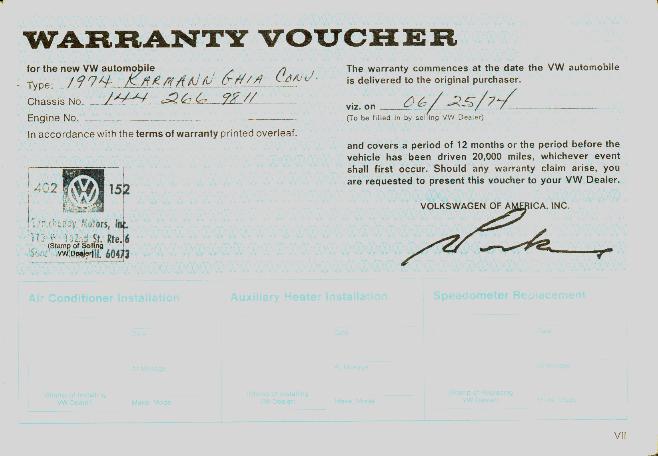 WARRANTY VOUCHER
for the new VW automobile
Type: 1974 KARMANN GHIA CONV.
Chassis No. 144 266 9811
Engine No.
In accordance with the terms of warranty printed overleaf.
The warranty commences at the date the VW automobile
is delivered to the original purchaser.
viz. on 06/25/74
(To be filled in by selling VW Dealer)
and covers a period of 12 months or the period before the
vehicle has been driven 20,000 miles, whichever event
shall first occur. Should any warranty claim arise, you
are requested to present this voucher to your VW Dealer.
VOLKSWAGEN OF AMERICA, INC.
402 152
Motors, Inc.
St. Rte. 6
(Stamp of Selling
VW Dealer) Ill. 60473
Air Conditioner Installation
Date
At Mileage
(Stamp of Installing
VW Dealer)
Make, Model
Auxiliary Heater Installation
Date
At Mileage
(Stamp of Installing
VW Dealer)
Make, Model
Speedometer Replacement
Date
At Mileage
(Stamp of Replacing
VW Dealer)
VII